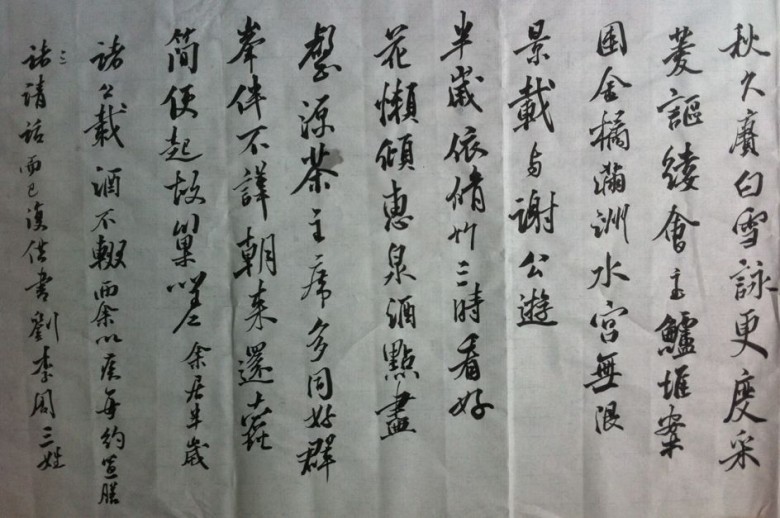 秋久賡白雪詠更度采
菱謳縷會玉鱸堆案
團金橘滿洲水宮無限
景載与謝公遊
半歲依脩竹三時看好
花懶傾惠泉酒點盡
壑源茶主席多同好群
峯伴不譁朝來還蠹
簡便起故巢嗟 余居半歲
諸公載酒不輟而余以疾每約置膳
諸請話而已復借書劉李周三姓